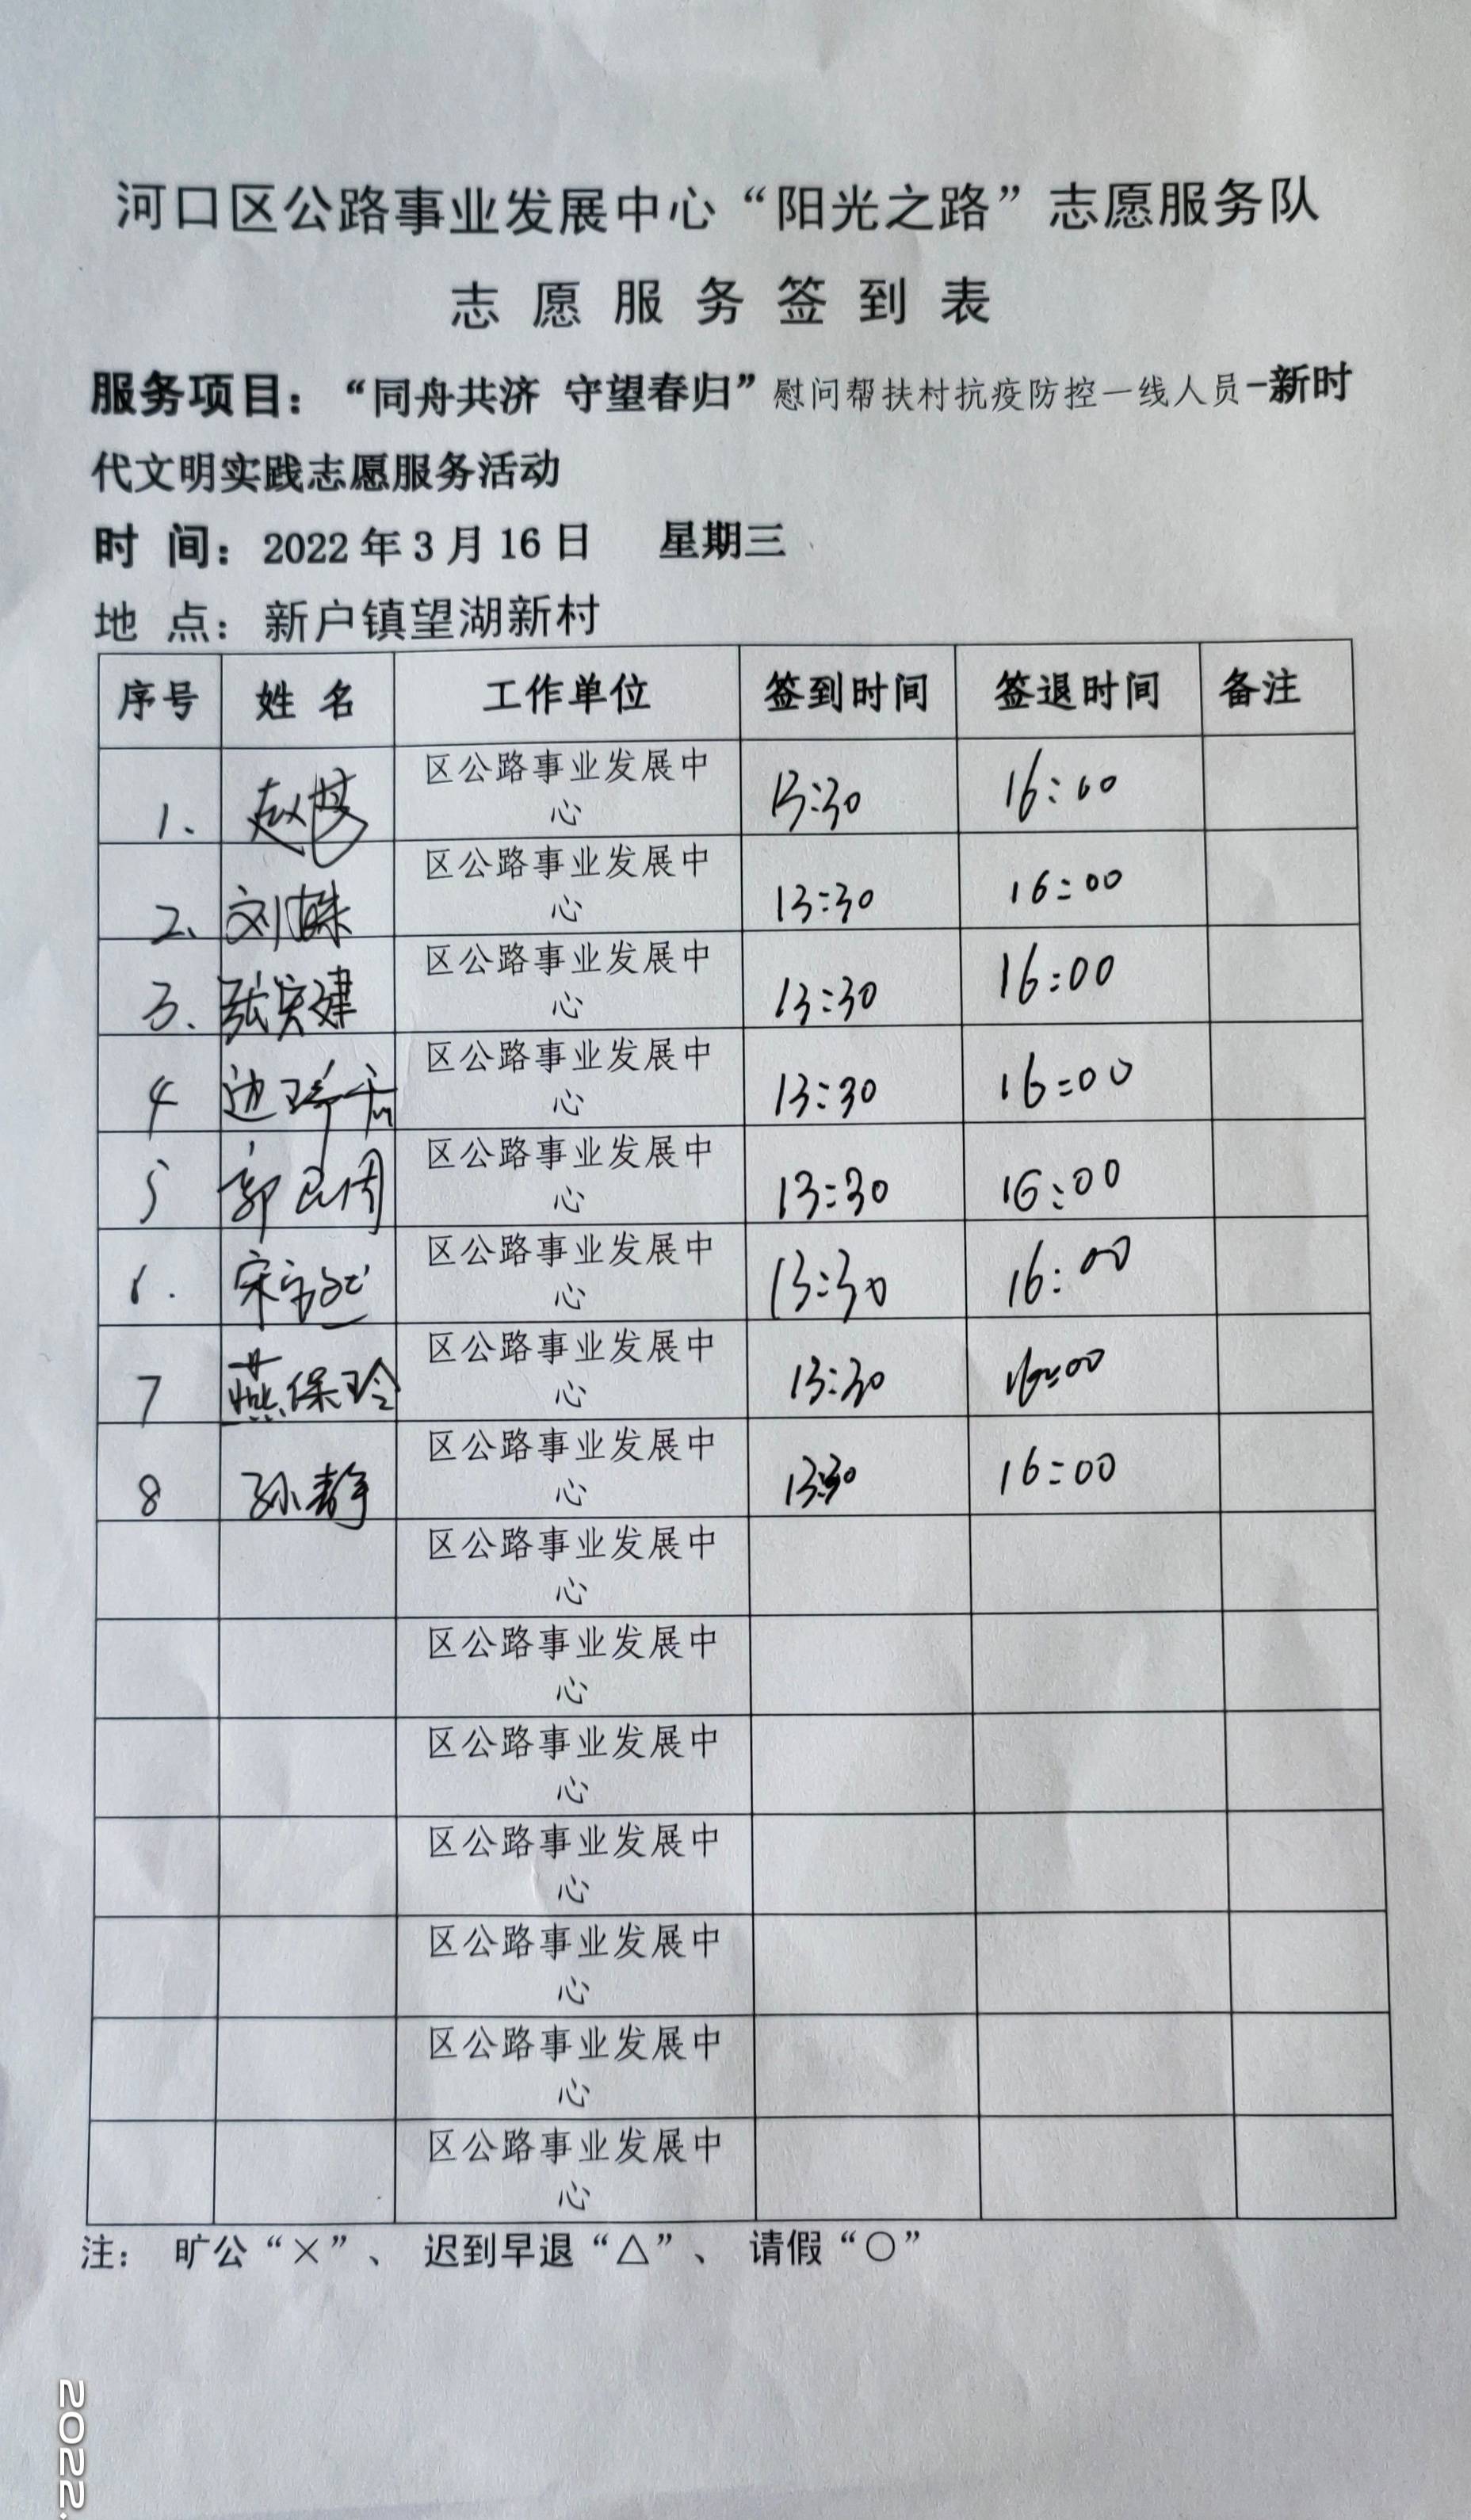 河口区公路事业发展中心“阳光之路”志愿服务队
志愿服务签到表
服务项目：“同舟共济 守望春归”慰问帮扶村抗疫防控一线人员-新时
代文明实践志愿服务活动
时 间：2022年3月16日 星期三
地 点：新户镇望湖新村
序号 姓名 工作单位 签到时间 签退时间 备注
区公路事业发展中
1. 赵 心 13:30 16:00
区公路事业发展中
2. 刘 心 13:30 16:00
区公路事业发展中
3. 张宾建 心 13:30 16:00
区公路事业发展中
4 边 心 13:30 16:00
区公路事业发展中
5 郭 心 13:30 16:00
区公路事业发展中
6. 宋 心 13:30 16:00
区公路事业发展中
7 燕保玲 心 13:30 16:00
区公路事业发展中
8 孙静 心 13:30 16:00
区公路事业发展中
心
区公路事业发展中
心
区公路事业发展中
心
区公路事业发展中
心
区公路事业发展中
心
区公路事业发展中
心
区公路事业发展中
心
注： 旷公“×”、 迟到早退“△”、 请假“○”
2022.